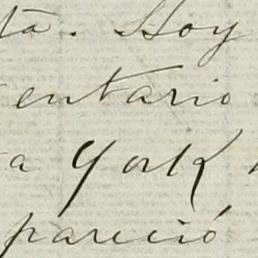 ta. Hoy
entario
a York
pareció